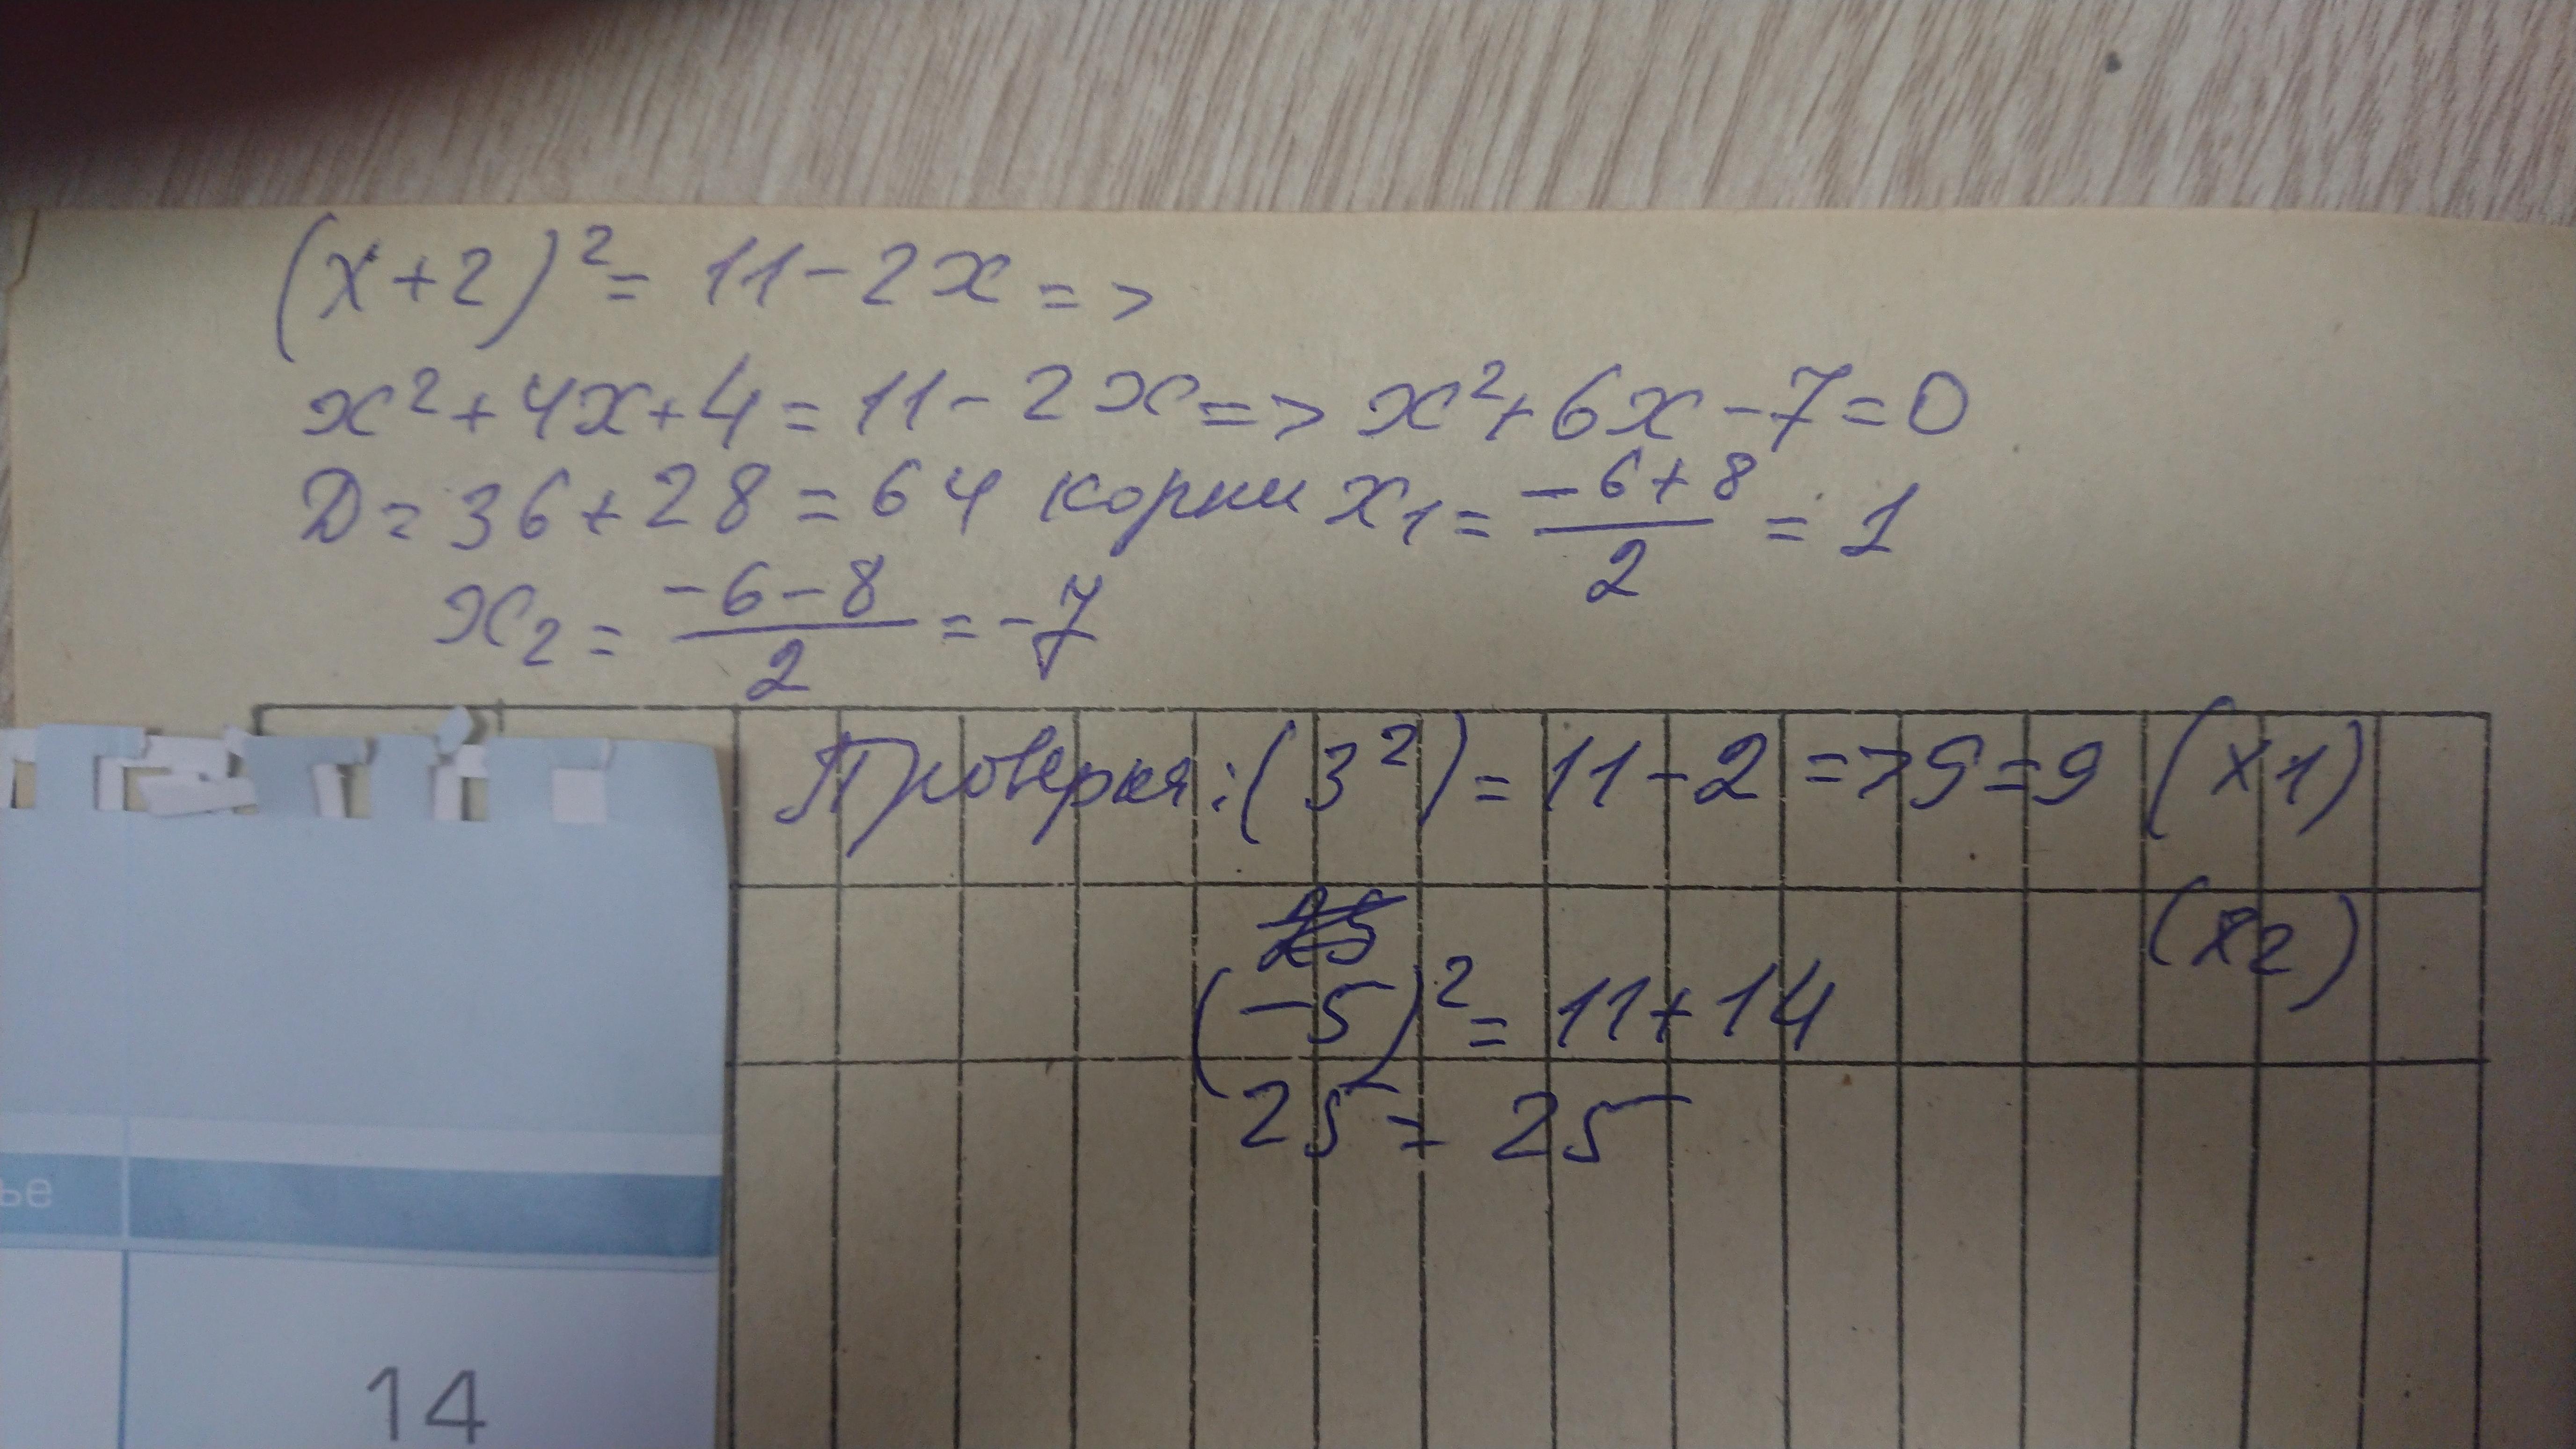 (x+2)²= 11-2x =>
x²+4x+4=11-2x=> x²+6x-7=0
D=36+28=64 корни x1=-6+8/2=1
x2=-6-8/2=-7
Проверка:(3²)=11-2=>9=9 (x1)
25
(x2)
(-5)²=11+14
25=25
ье
14